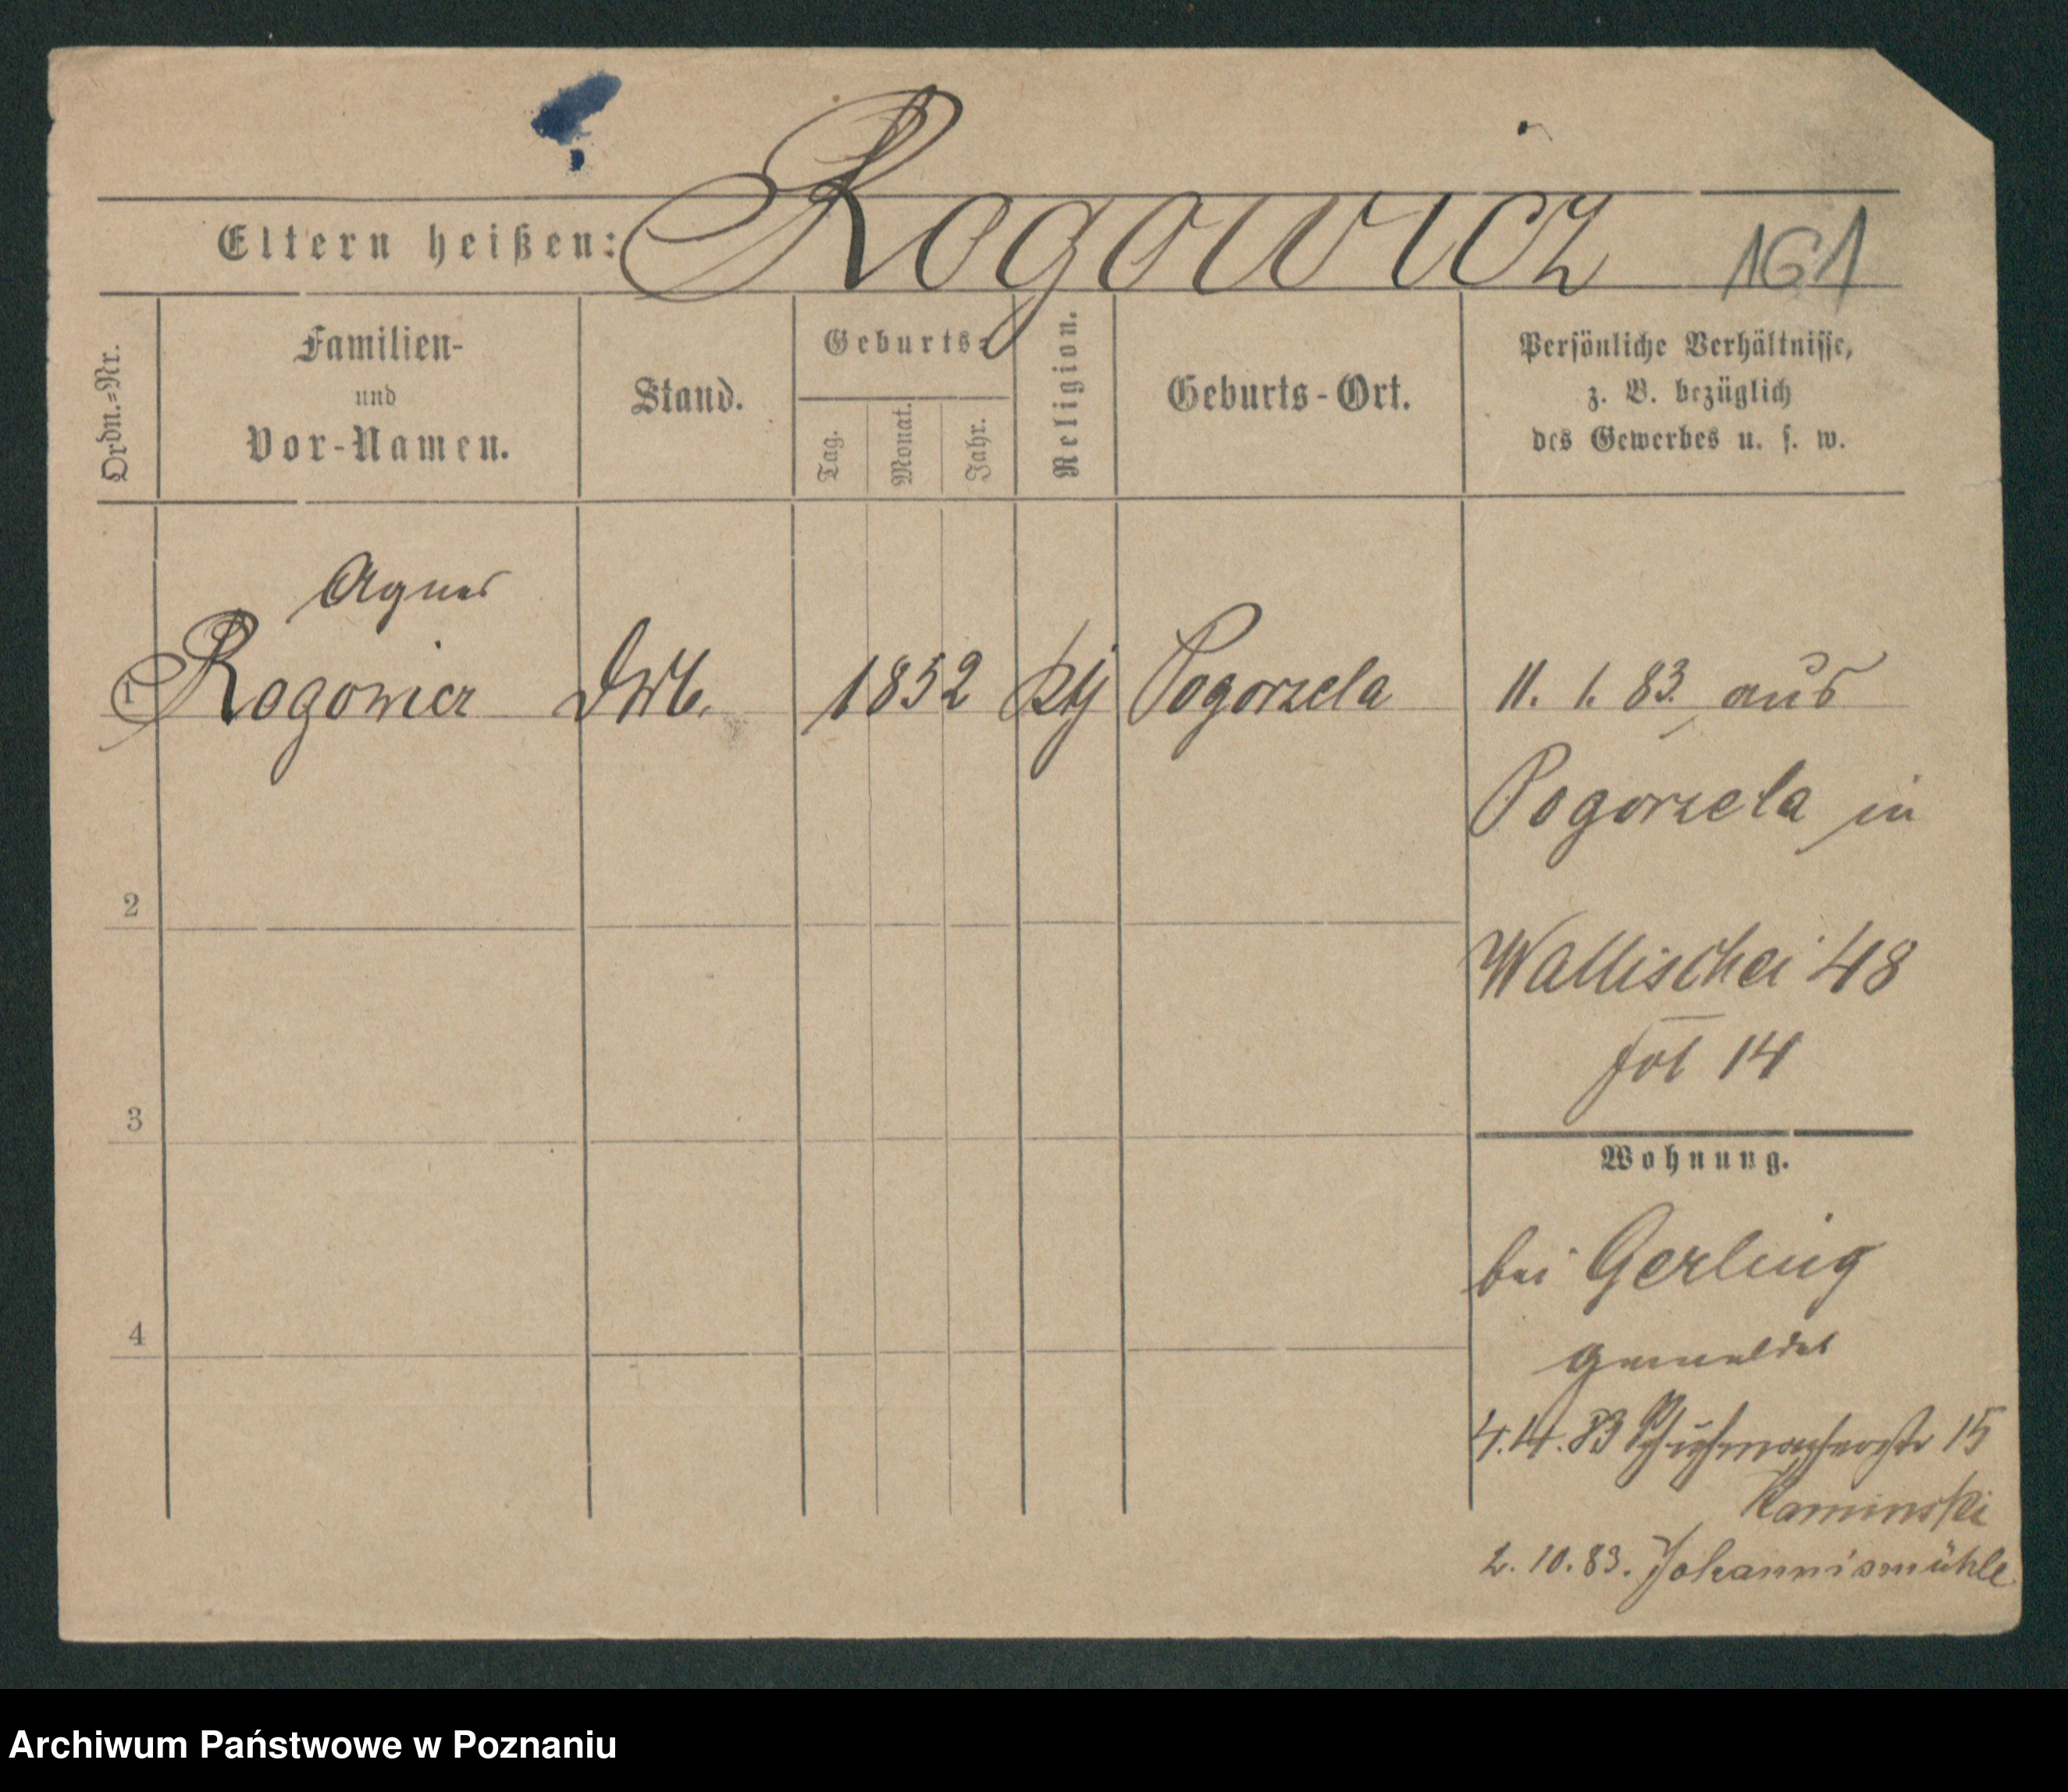 Eltern heißen: Rogowicz 161
Ordn.=Nr.
Familien-
und
Vor-Namen.
Stand.
Geburts=
Tag.
Monat.
Jahr.
Religion.
Geburts-Ort.
Persönliche Verhältnisse,
z. B. bezüglich
des Gewerbes u. s. w.
Agnes
1 Rogowicz 1852 Pogorzela 11. 1. 83. aus
Pogorzela in
2
Wallischei 48
14
3
Wohnung.
bei Gerling
4
gemeldet
4.4.83 Schuhmacherstr 15
Kaminski
2.10.83. Johannismühle
Archiwum Państwowe w Poznaniu